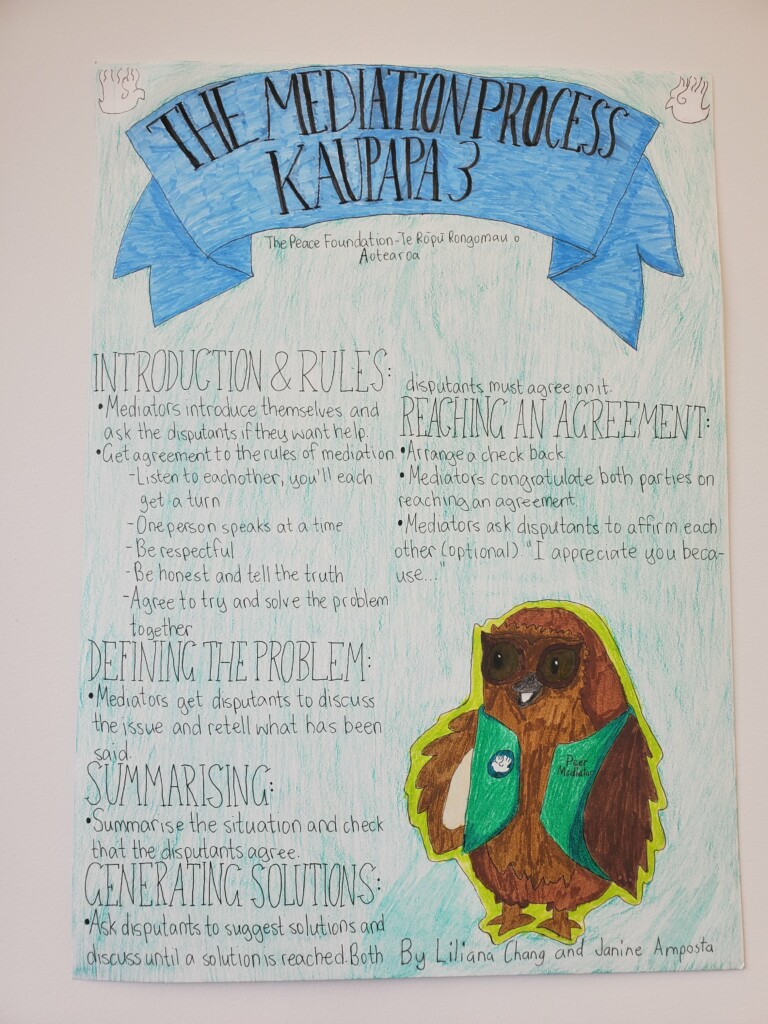 THE MEDIATION PROCESS
KAUPAPA 3
The Peace Foundation-Te Rōpū Rongomau o
Aotearoa
INTRODUCTION & RULES:
•Mediators introduce themselves and
ask the disputants if they want help.
•Get agreement to the rules of mediation
-Listen to eachother, you'll each
get a turn
-One person speaks at a time
-Be respectful
-Be honest and tell the truth
-Agree to try and solve the problem
together
DEFINING THE PROBLEM:
•Mediators get disputants to discuss
the issue and retell what has been
said.
SUMMARISING:
•Summarise the situation and check
that the disputants agree.
GENERATING SOLUTIONS:
•Ask disputants to suggest solutions and
discuss until a solution is reached. Both
disputants must agree on it.
REACHING AN AGREEMENT:
•Arrange a check back
•Mediators congratulate both parties on
reaching an agreement
•Mediators ask disputants to affirm each
other (optional) "I appreciate you beca-
use..."
Peer
Mediator
By Liliana Chang and Janine Amposta